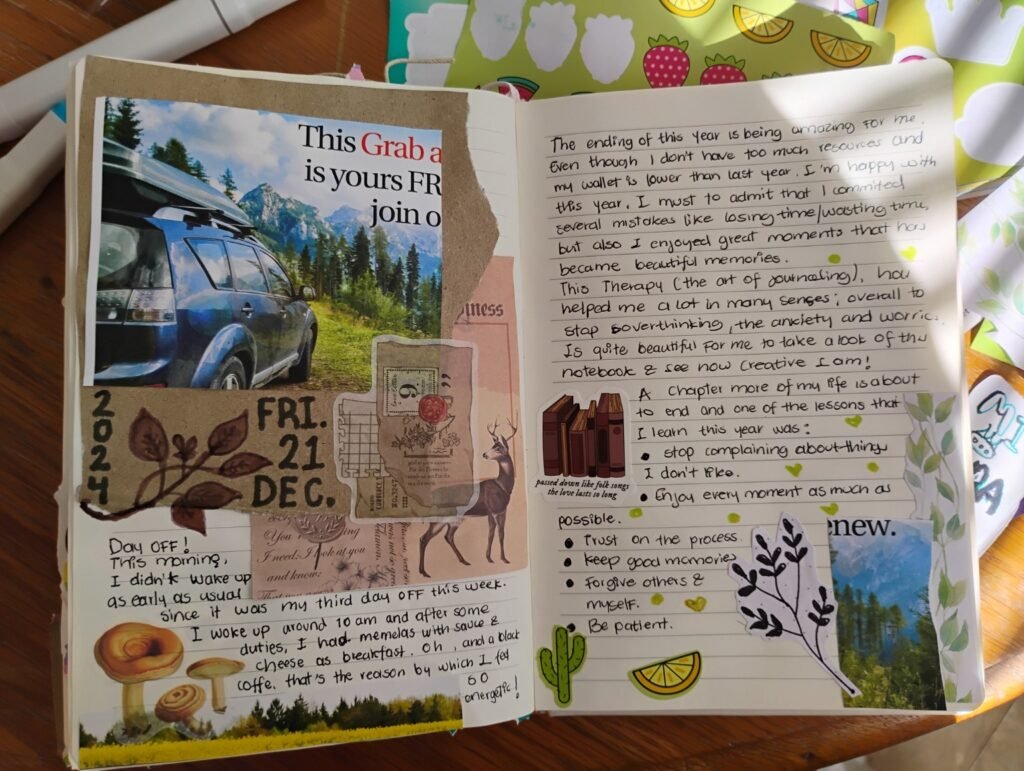 This Grab a
is yours FR
join o
iness
2024
FRI.
21
DEC.
6
You
I need: I look at you
and know:
Day OFF!
This morning,
I didn't wake up
as early as usual
since it was my third day OFF this week.
I woke up around 10 am and after some
duties, I had memelas with sauce &
cheese as breakfast. Oh, and a black
coffe. that's the reason by which I felt
so
energetic!
The ending of this year is being amazing for me.
Even though I don't have too much resources and
my wallet is lower than last year. I'm happy with
this year. I must to admit that I commited
several mistakes like losing time/wasting time,
but also I enjoyed great moments that has
became beautiful memories.
This Therapy (the art of journaling), has
helped me a lot in many senses; overall to
stop overthinking, the anxiety and
Is quite beautiful for me to take a look of this
notebook & see how creative I am!
A chapter more of my life is about
to end and one of the lessons that
I learn this year was:
• stop complaining about things
I don't like.
• Enjoy every moment as much as
possible.
• Trust on the process.
• Keep good memories
• Forgive others &
myself.
• Be patient.
passed down like folk songs
the love lasts so long
enew.
MI